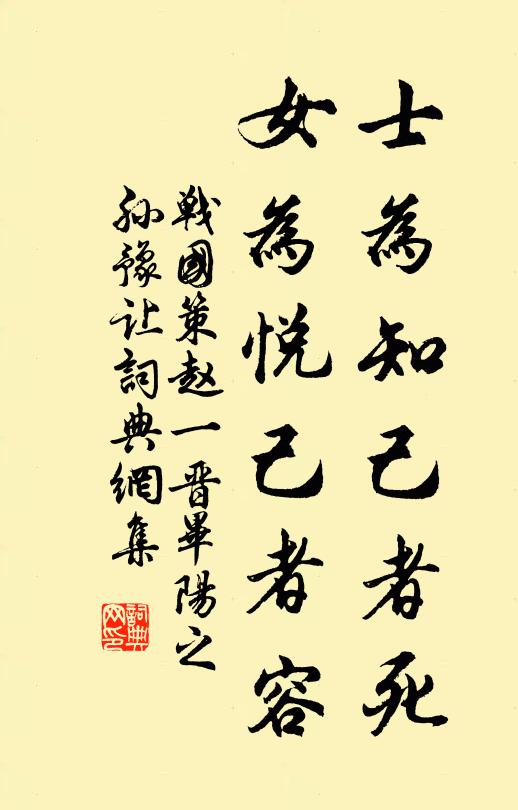 士為知己者死
女為悦己者容
戰國策趙一晋畢陽之
孙豫让詞典網集
詞典网印